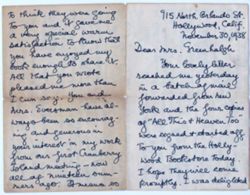 915 North Orlando St.
Hollywood, Calif.
November 30, 1938
Dear Mrs. Greenhalgh
Your lovely letter
reached me yesterday
in a batch of mail
forwarded from New
York and the four copies
of "All This & Heaven Too"
were signed & started off
to you from the Holly-
wood Bookstore today
I hope they will come
promptly. I was delighted
to think they were going
to you and it gave me
a very special warm
satisfaction to know that
you have enjoyed my
book enough to share it.
All that you wrote
pleased me more than
I can say. You and
Mrs. have al-
ways been so encourag-
ing and generous in
your interest in my work
from our first Cranberry
Island meeting now
all of nineteen sum-
mers ago. It means so